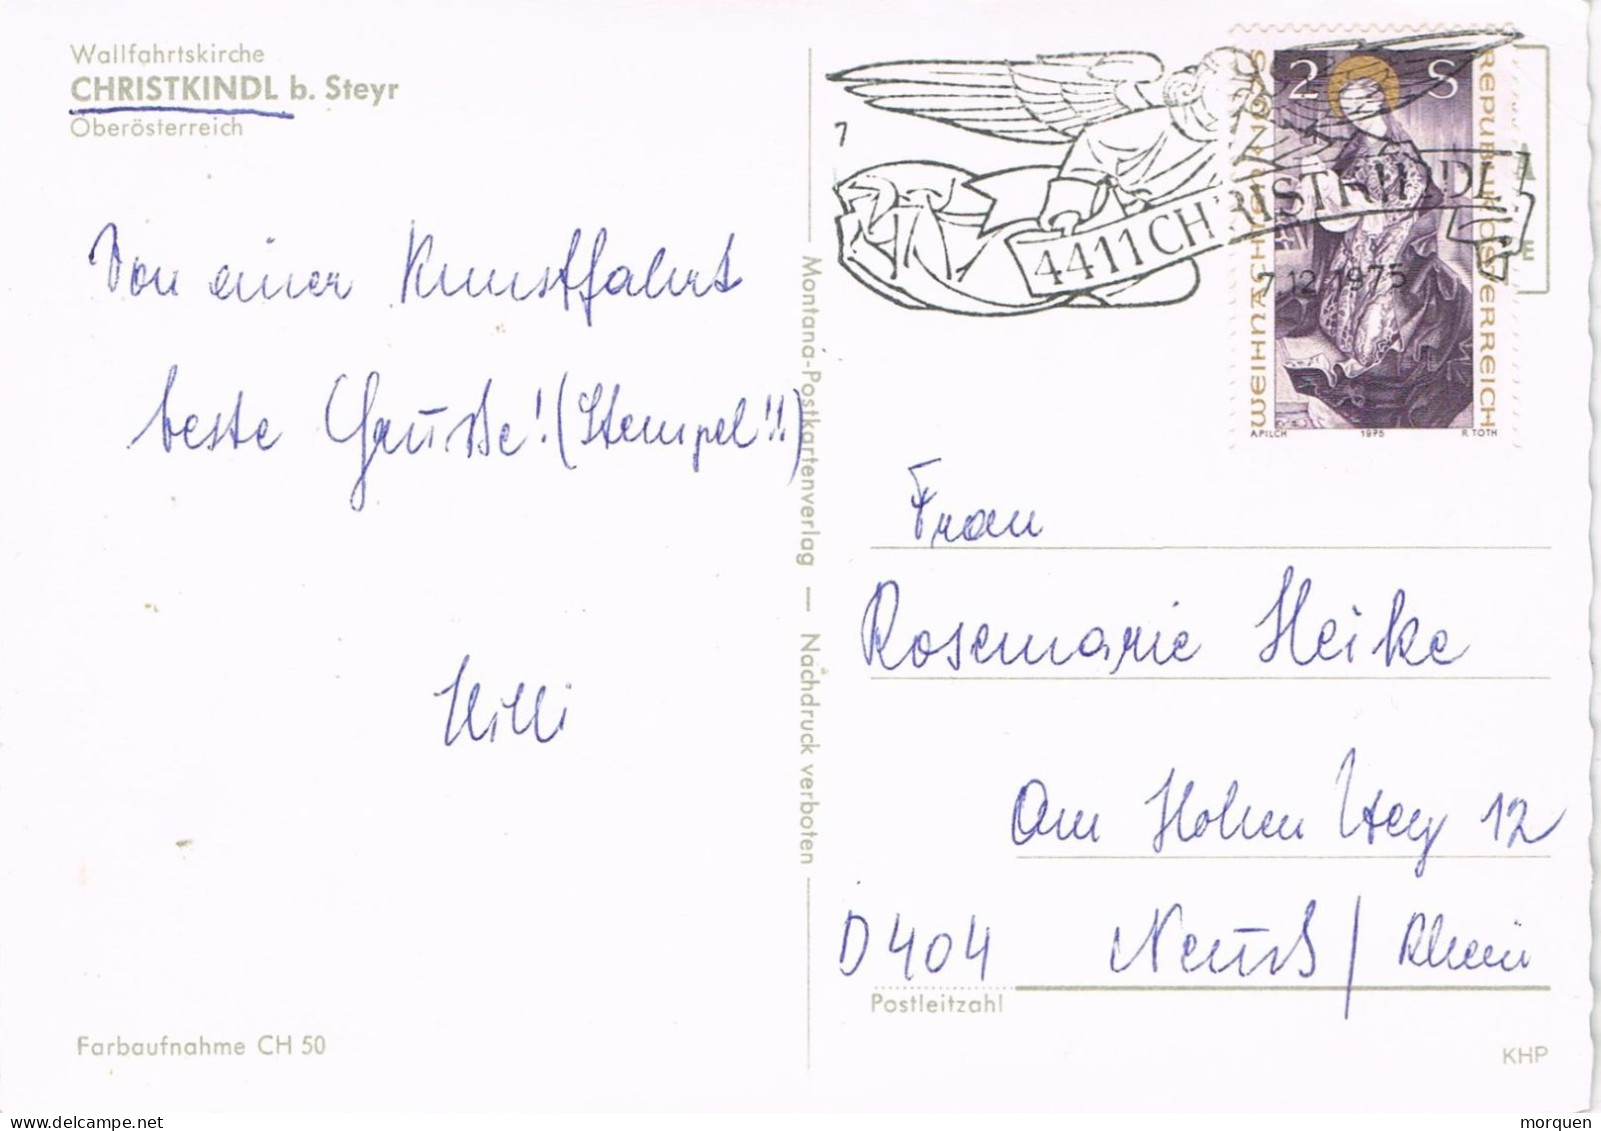 Wallfahrtskirche
CHRISTKINDL b. Steyr
Oberösterreich
Von einer Kunstfahrt
beste Grüße! (Stempel!!)
Willi
Farbaufnahme CH 50
Montana-Postkartenverlag — Nachdruck verboten
7
4411 CHRISTKINDL
7.12.1975
2 S
REPUBLIK ÖSTERREICH
WEIHNACHTEN 1975
A PILCH 1975 R. TOTH
Frau
Rosemarie Heike
Am Hohen Weg 12
D 404 Neuß / Rhein
Postleitzahl
KHP
morquen